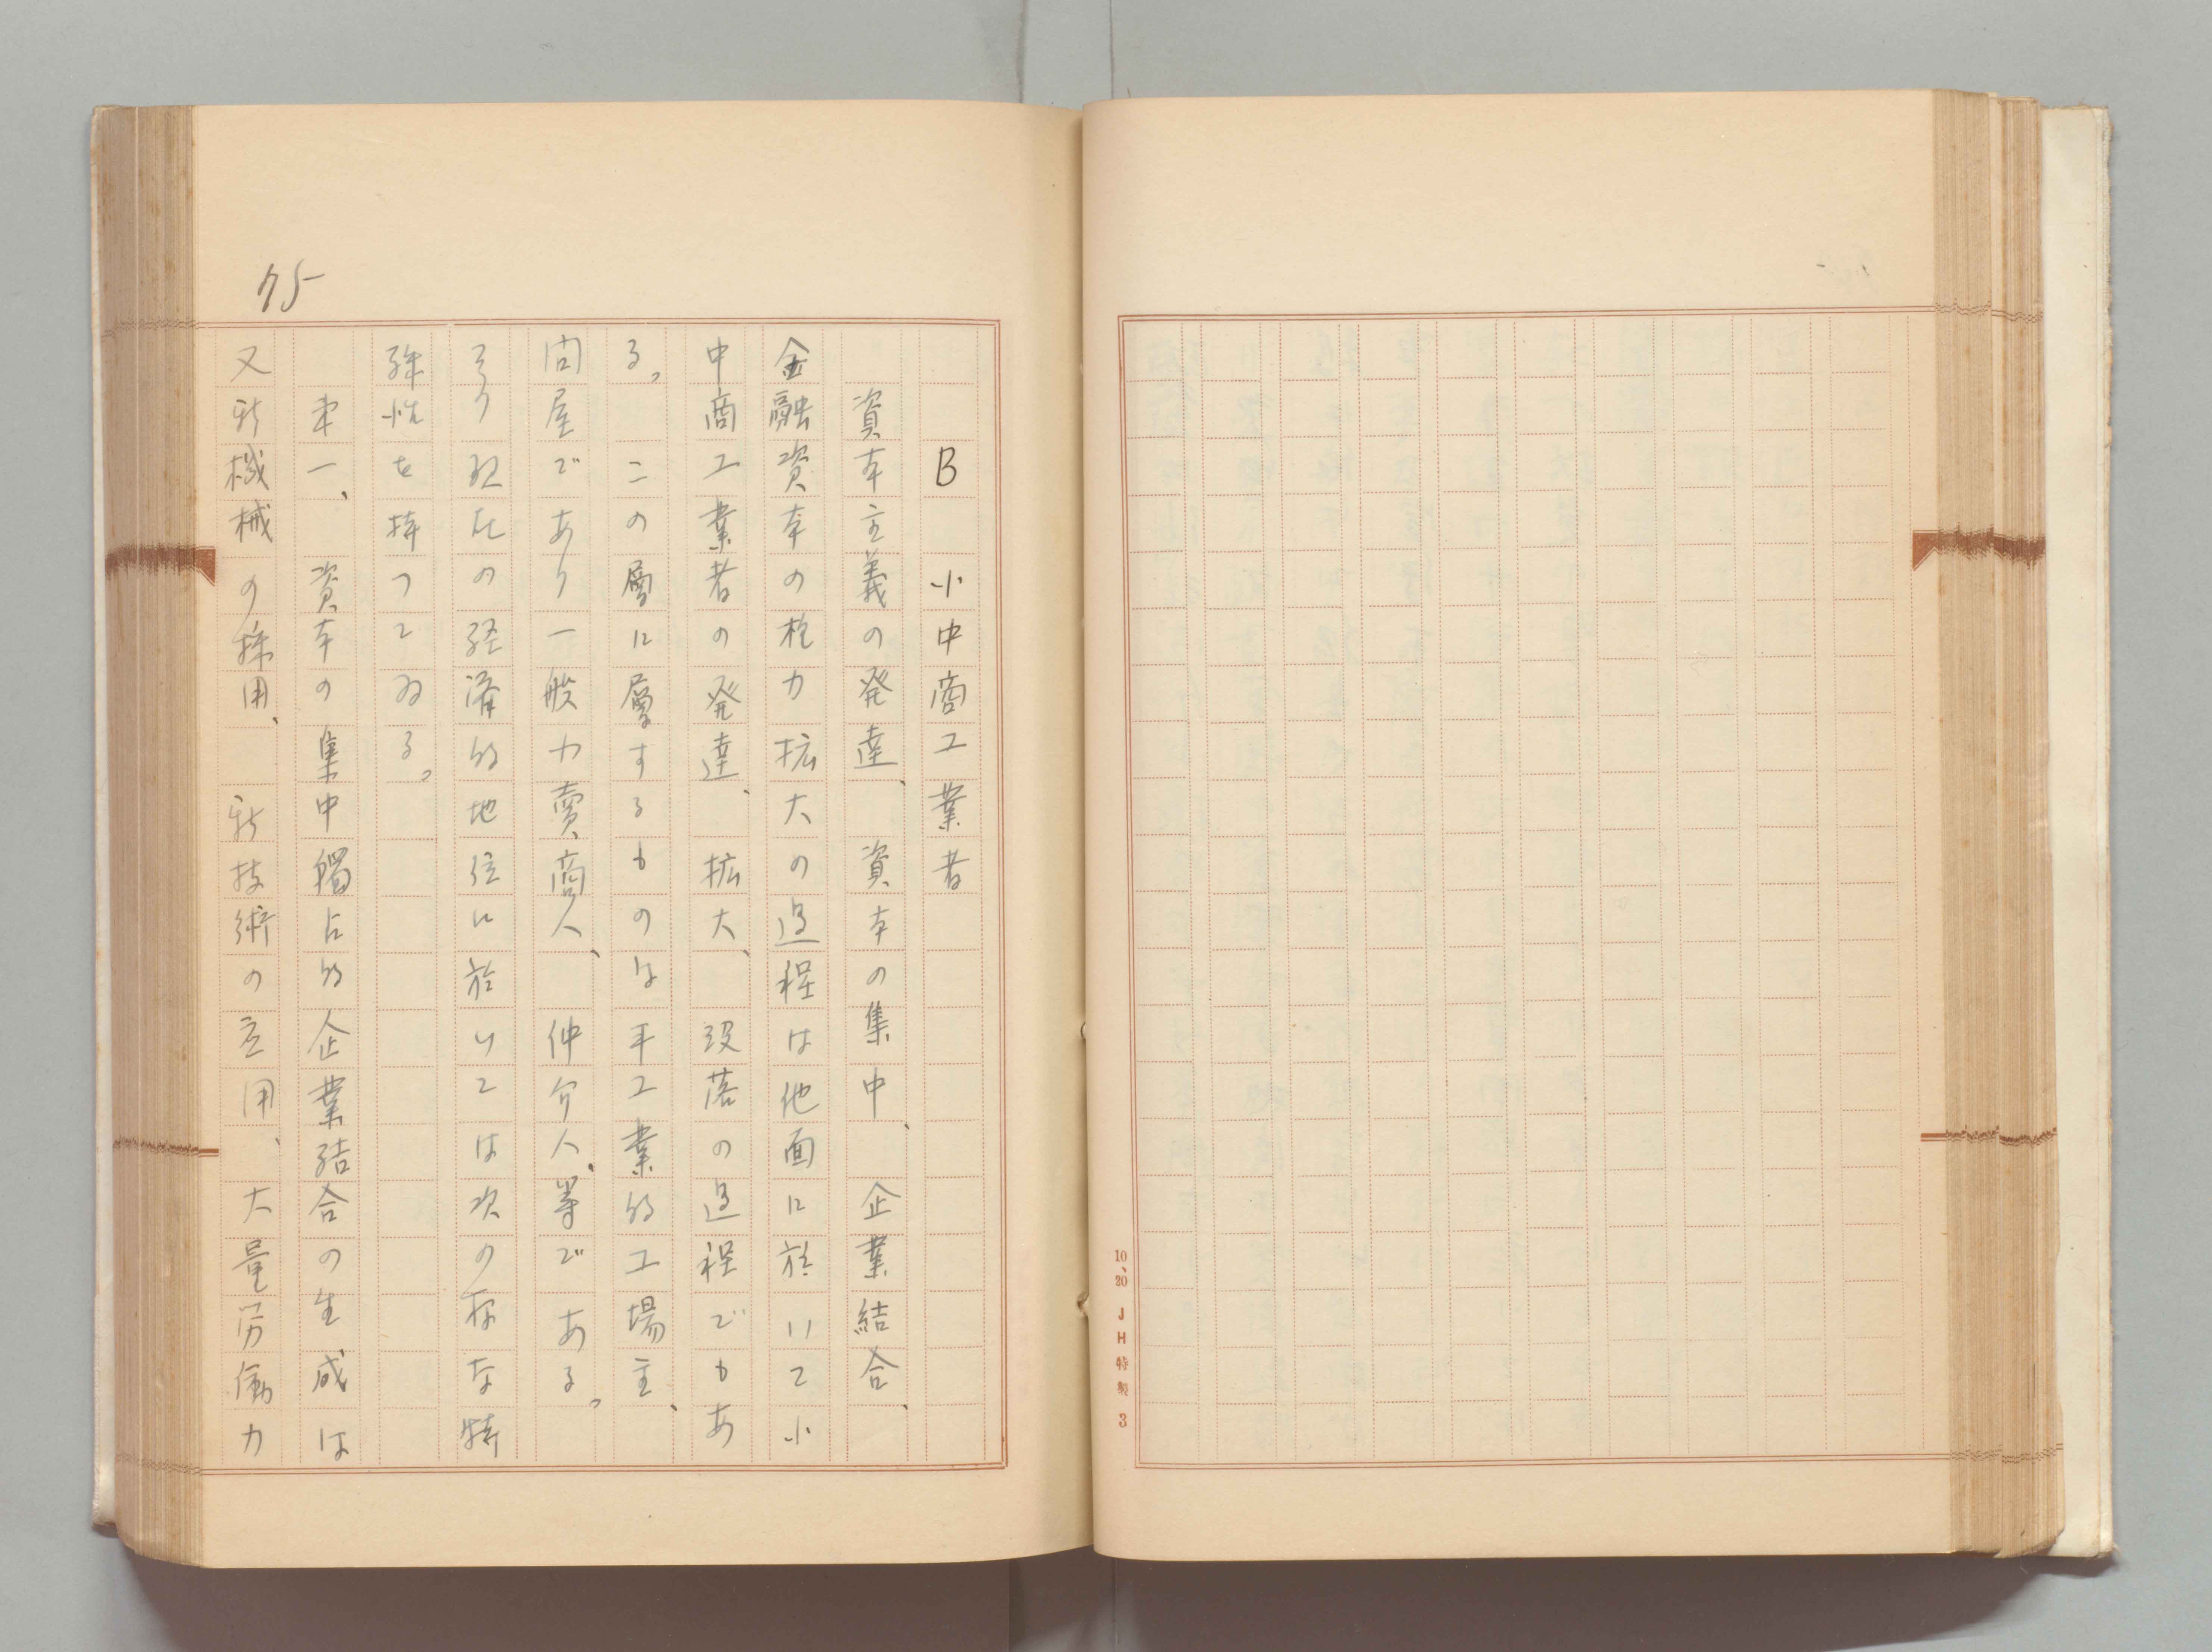 10、20 JH特製 3
75
B 小中商工業者
資本主義の発達、資本の集中、企業結合、
金融資本の権力拡大の過程は他面に於いて小
中商工業者の発達、拡大、没落の過程でもあ
る。この層に層するものは手工業的工場主、
問屋であり一般力賣商人、仲介人、等である。
現在の経済的地位に於いては次の様な特
殊性を持つてゐる。
第一、資本の集中獨占的企業結合の生成は
又新機械の採用、新技術の応用、大量労働力